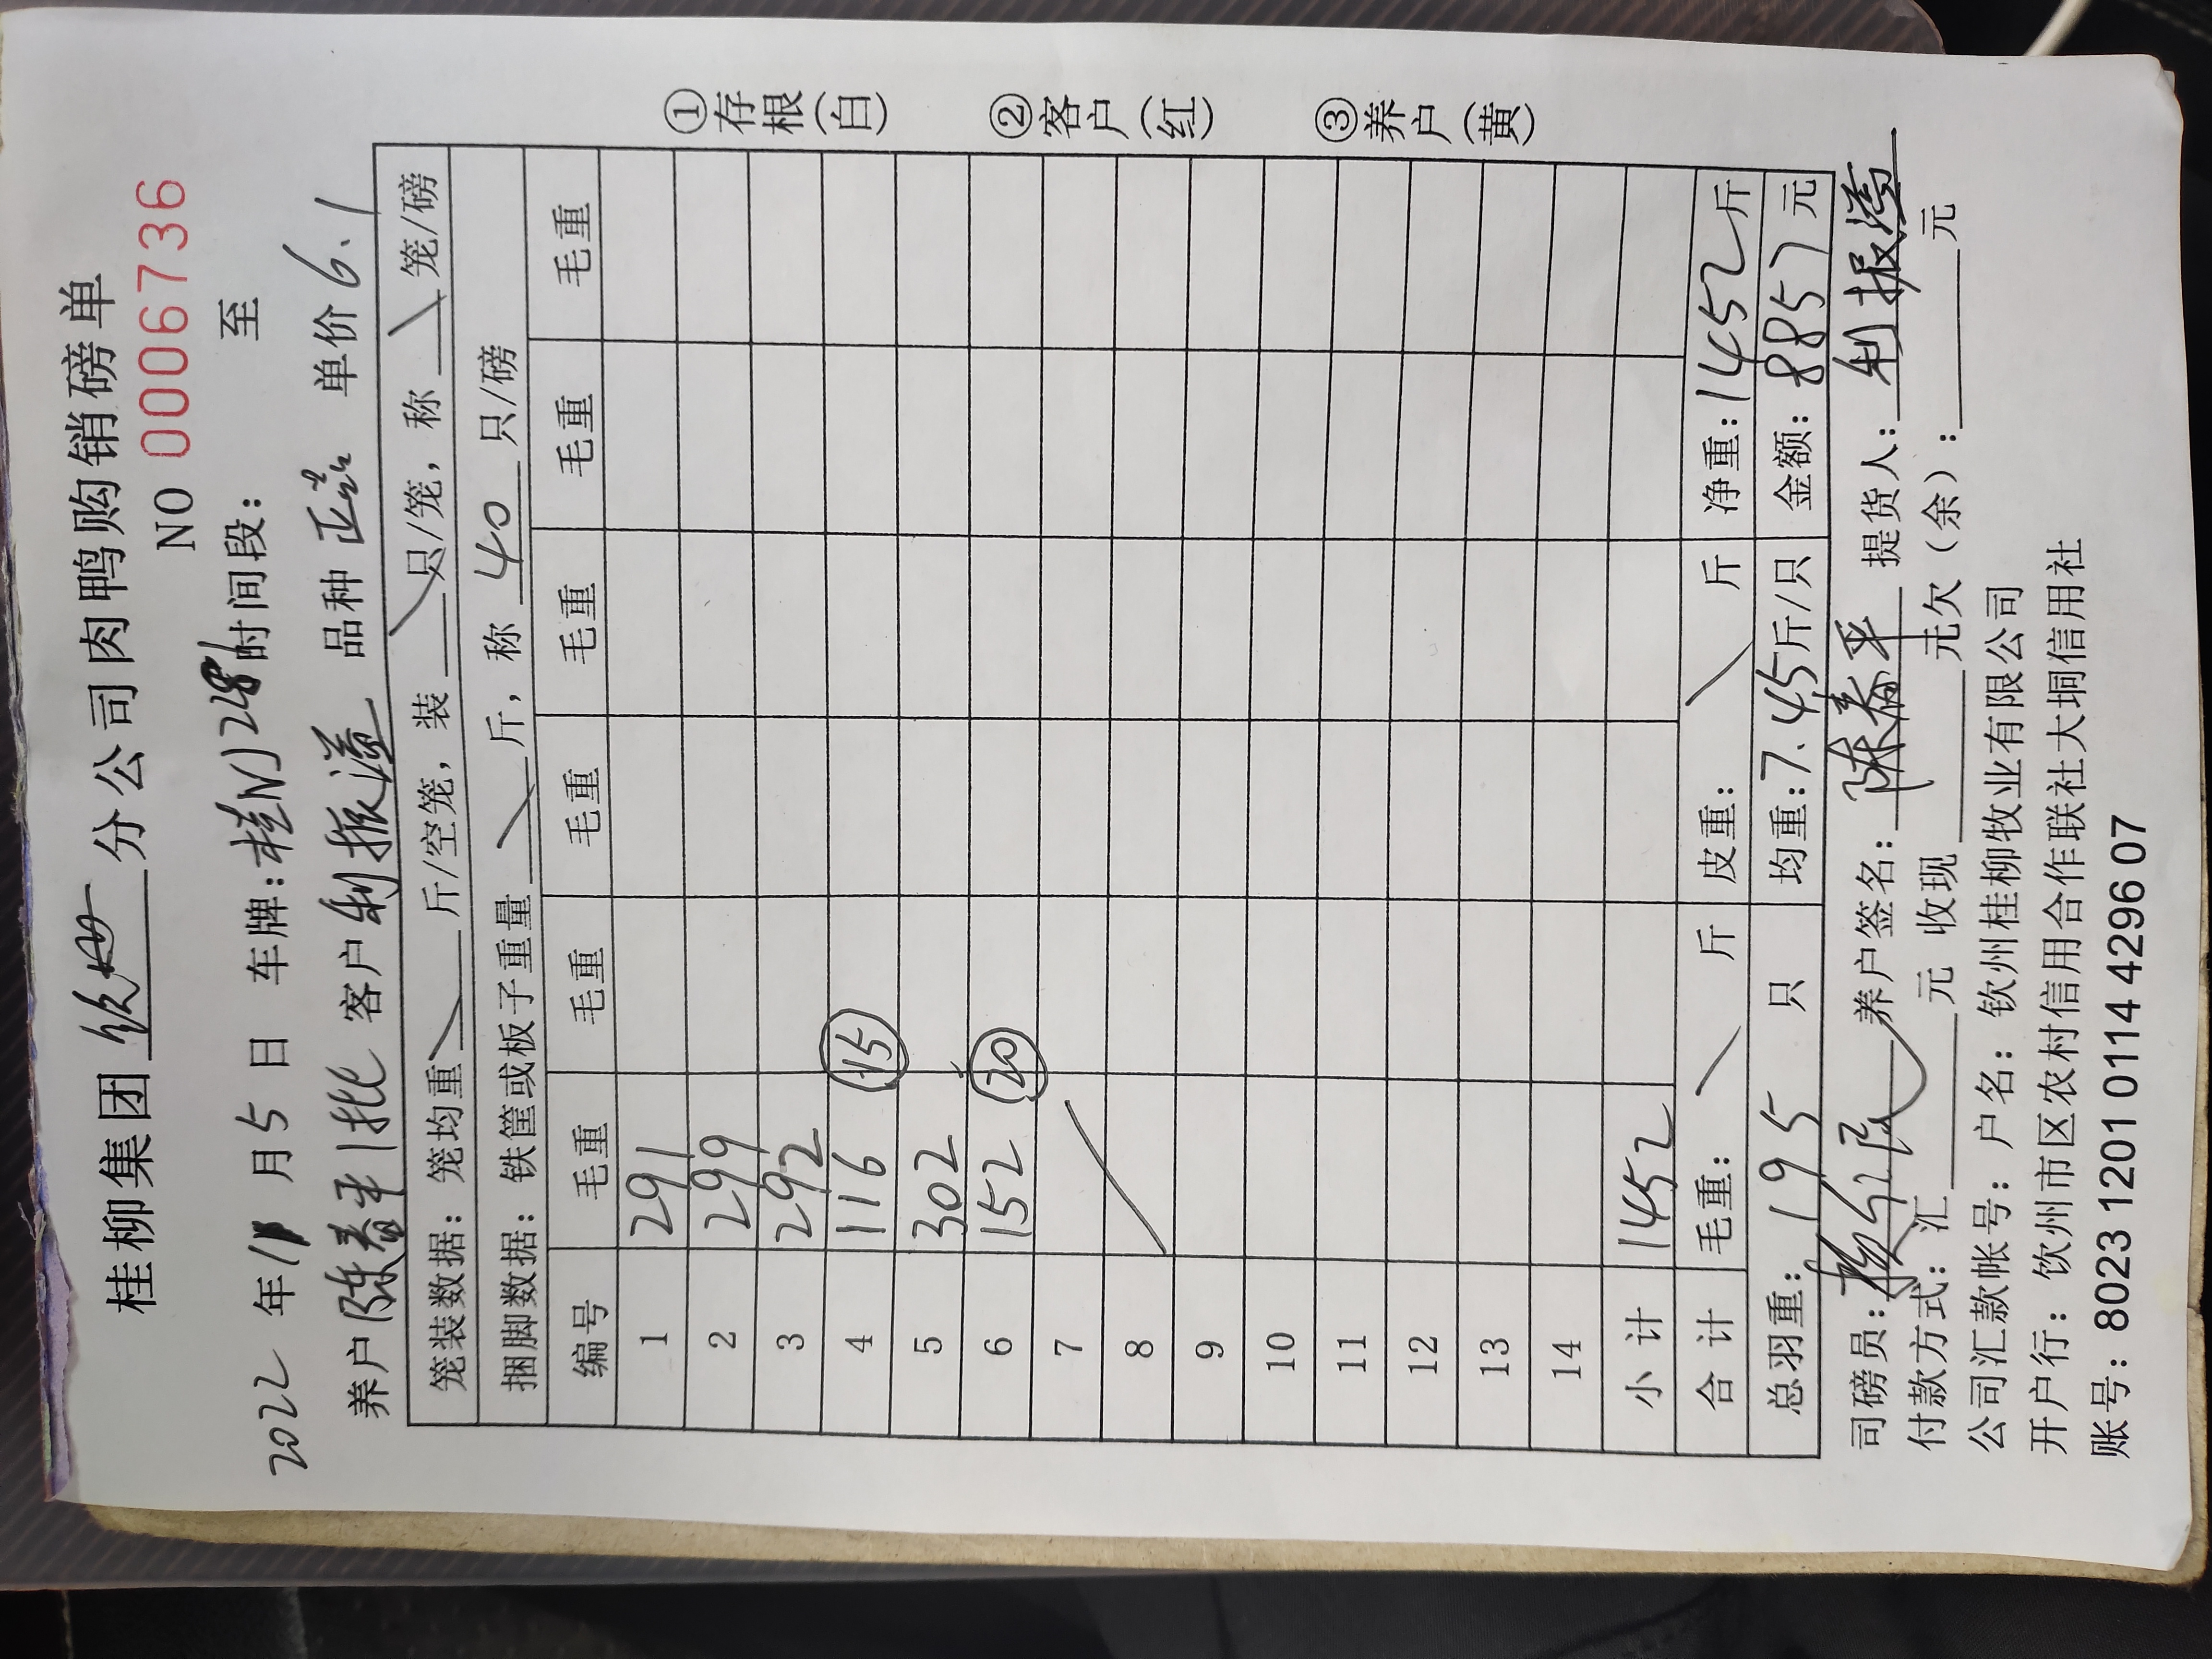 桂柳集团 钦州 分公司肉鸭购销磅单
NO 0006736
2022 年 11 月 5 日 车牌:桂N 时间段: 至
养户 陈春平1批 客户 利振溢 品种 单价 6.1
笼装数据:笼均重 斤/空笼,装 只/笼,称 笼/磅
捆脚数据:铁筐或板子重量 斤,称 40 只/磅
编号 毛重 毛重 毛重 毛重 毛重 毛重
1 291
2 299
3 292
4 116 15
5 302
6 152 20
7
8
9
10
11
12
13
14
小计 1452
合计 毛重: 斤 皮重: 斤 净重:1452斤
总羽重: 195 只 均重:7.45斤/只 金额:8857元
司磅员: 养户签名:陈春平 提货人:利振溢
付款方式:汇 元 收现 元欠(余): 元
公司汇款帐号:户名:钦州桂柳牧业有限公司
开户行:钦州市区农村信用合作联社大垌信用社
账号:8023 1201 0114 4296 07
①存根(白) ②客户(红) ③养户(黄)